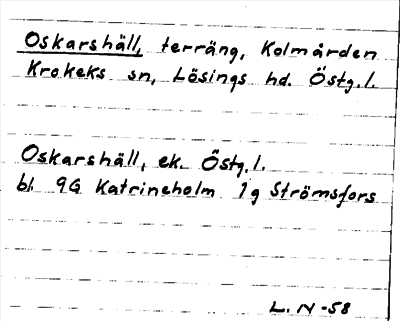 Oskarshäll, terräng, Kolmården
Krokeks sn, Lösings hd. Östg.l.
Oskarshäll, ek. Östg.l.
bl. 9G Katrineholm 1g Strömsfors
L. N -58